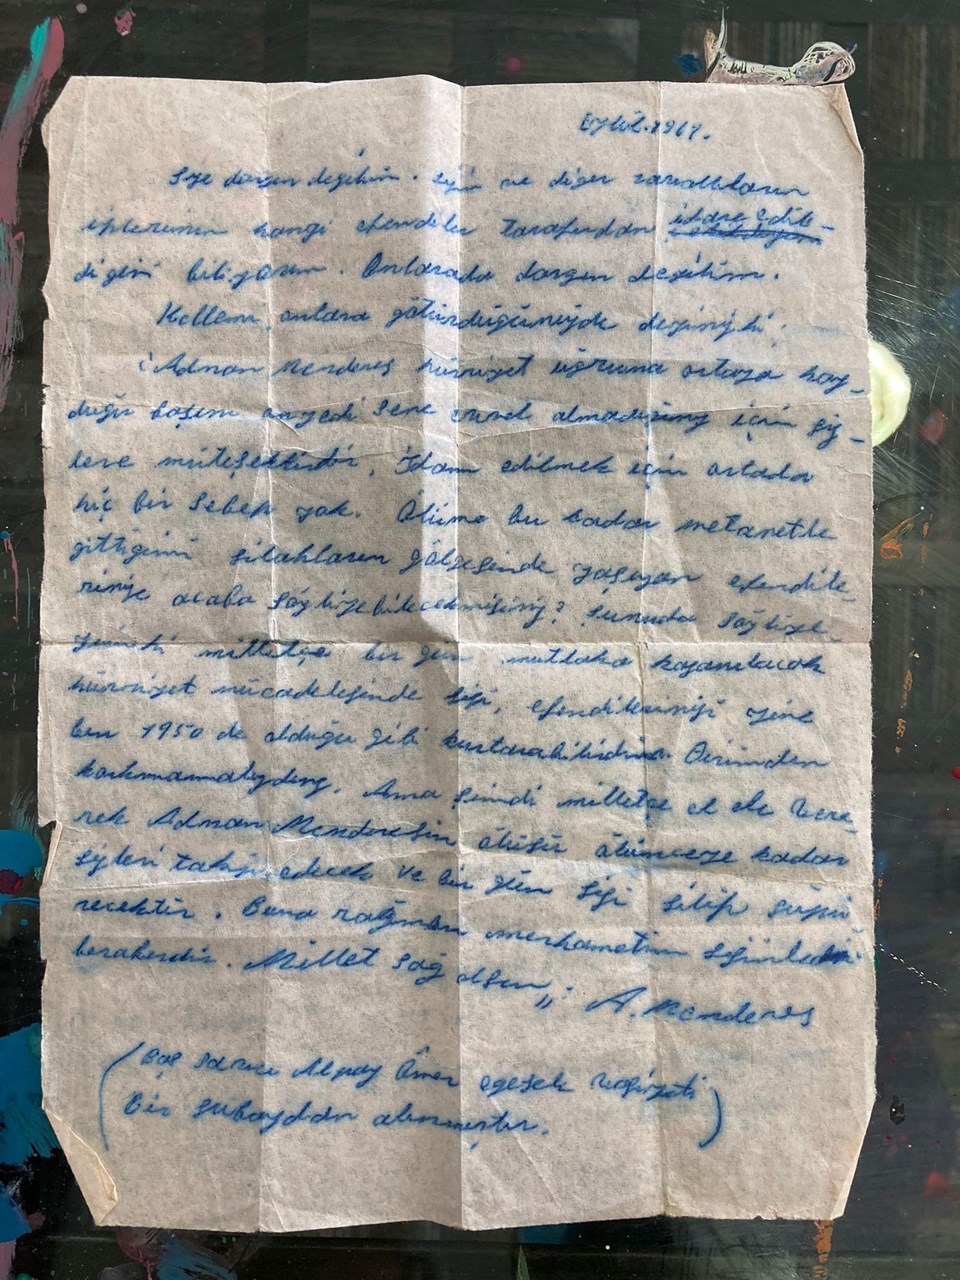 Eylül.1961.
Size dargın değilim. Sizin ve diğer zavallıların
iplerinin hangi efendiler tarafından idare edil-
diğini biliyorum. Onlarada dargın değilim.
Kellemi onlara götürdüğünüzde deyiniz ki;
"Adnan Menderes hürriyet uğruna ortaya koy-
duğu başını onyedi sene evvel almadığınız için siz-
lere müteşekkirdir. İdam edilmek için ortada
hiç bir sebep yok. Ölüme bu kadar metanetle
gittiğimi silahların gölgesinde yaşayan efendile-
rinize acaba söyliyebilecekmisiniz? Şunuda söyliye-
yimki milletçe bir gün mutlaka kazanılacak
hürriyet mücadelesinde sizi, efendilerinizi yine
ben 1950 de olduğu gibi kurtarabilirdim. Dirimden
korkmamalıydınız. Ama şimdi milletçe el ele vere-
rek Adnan Menderesin ölüsü ölünceye kadar
sizleri takip edecek ve bir gün sizi silip süpü-
recektir. Buna rağmen merhametim sizinle
beraberdir. Millet sağ olsun„; A. Menderes
(Baş savcı Ömer Egesel
Bir subaydan alınmıştır.)